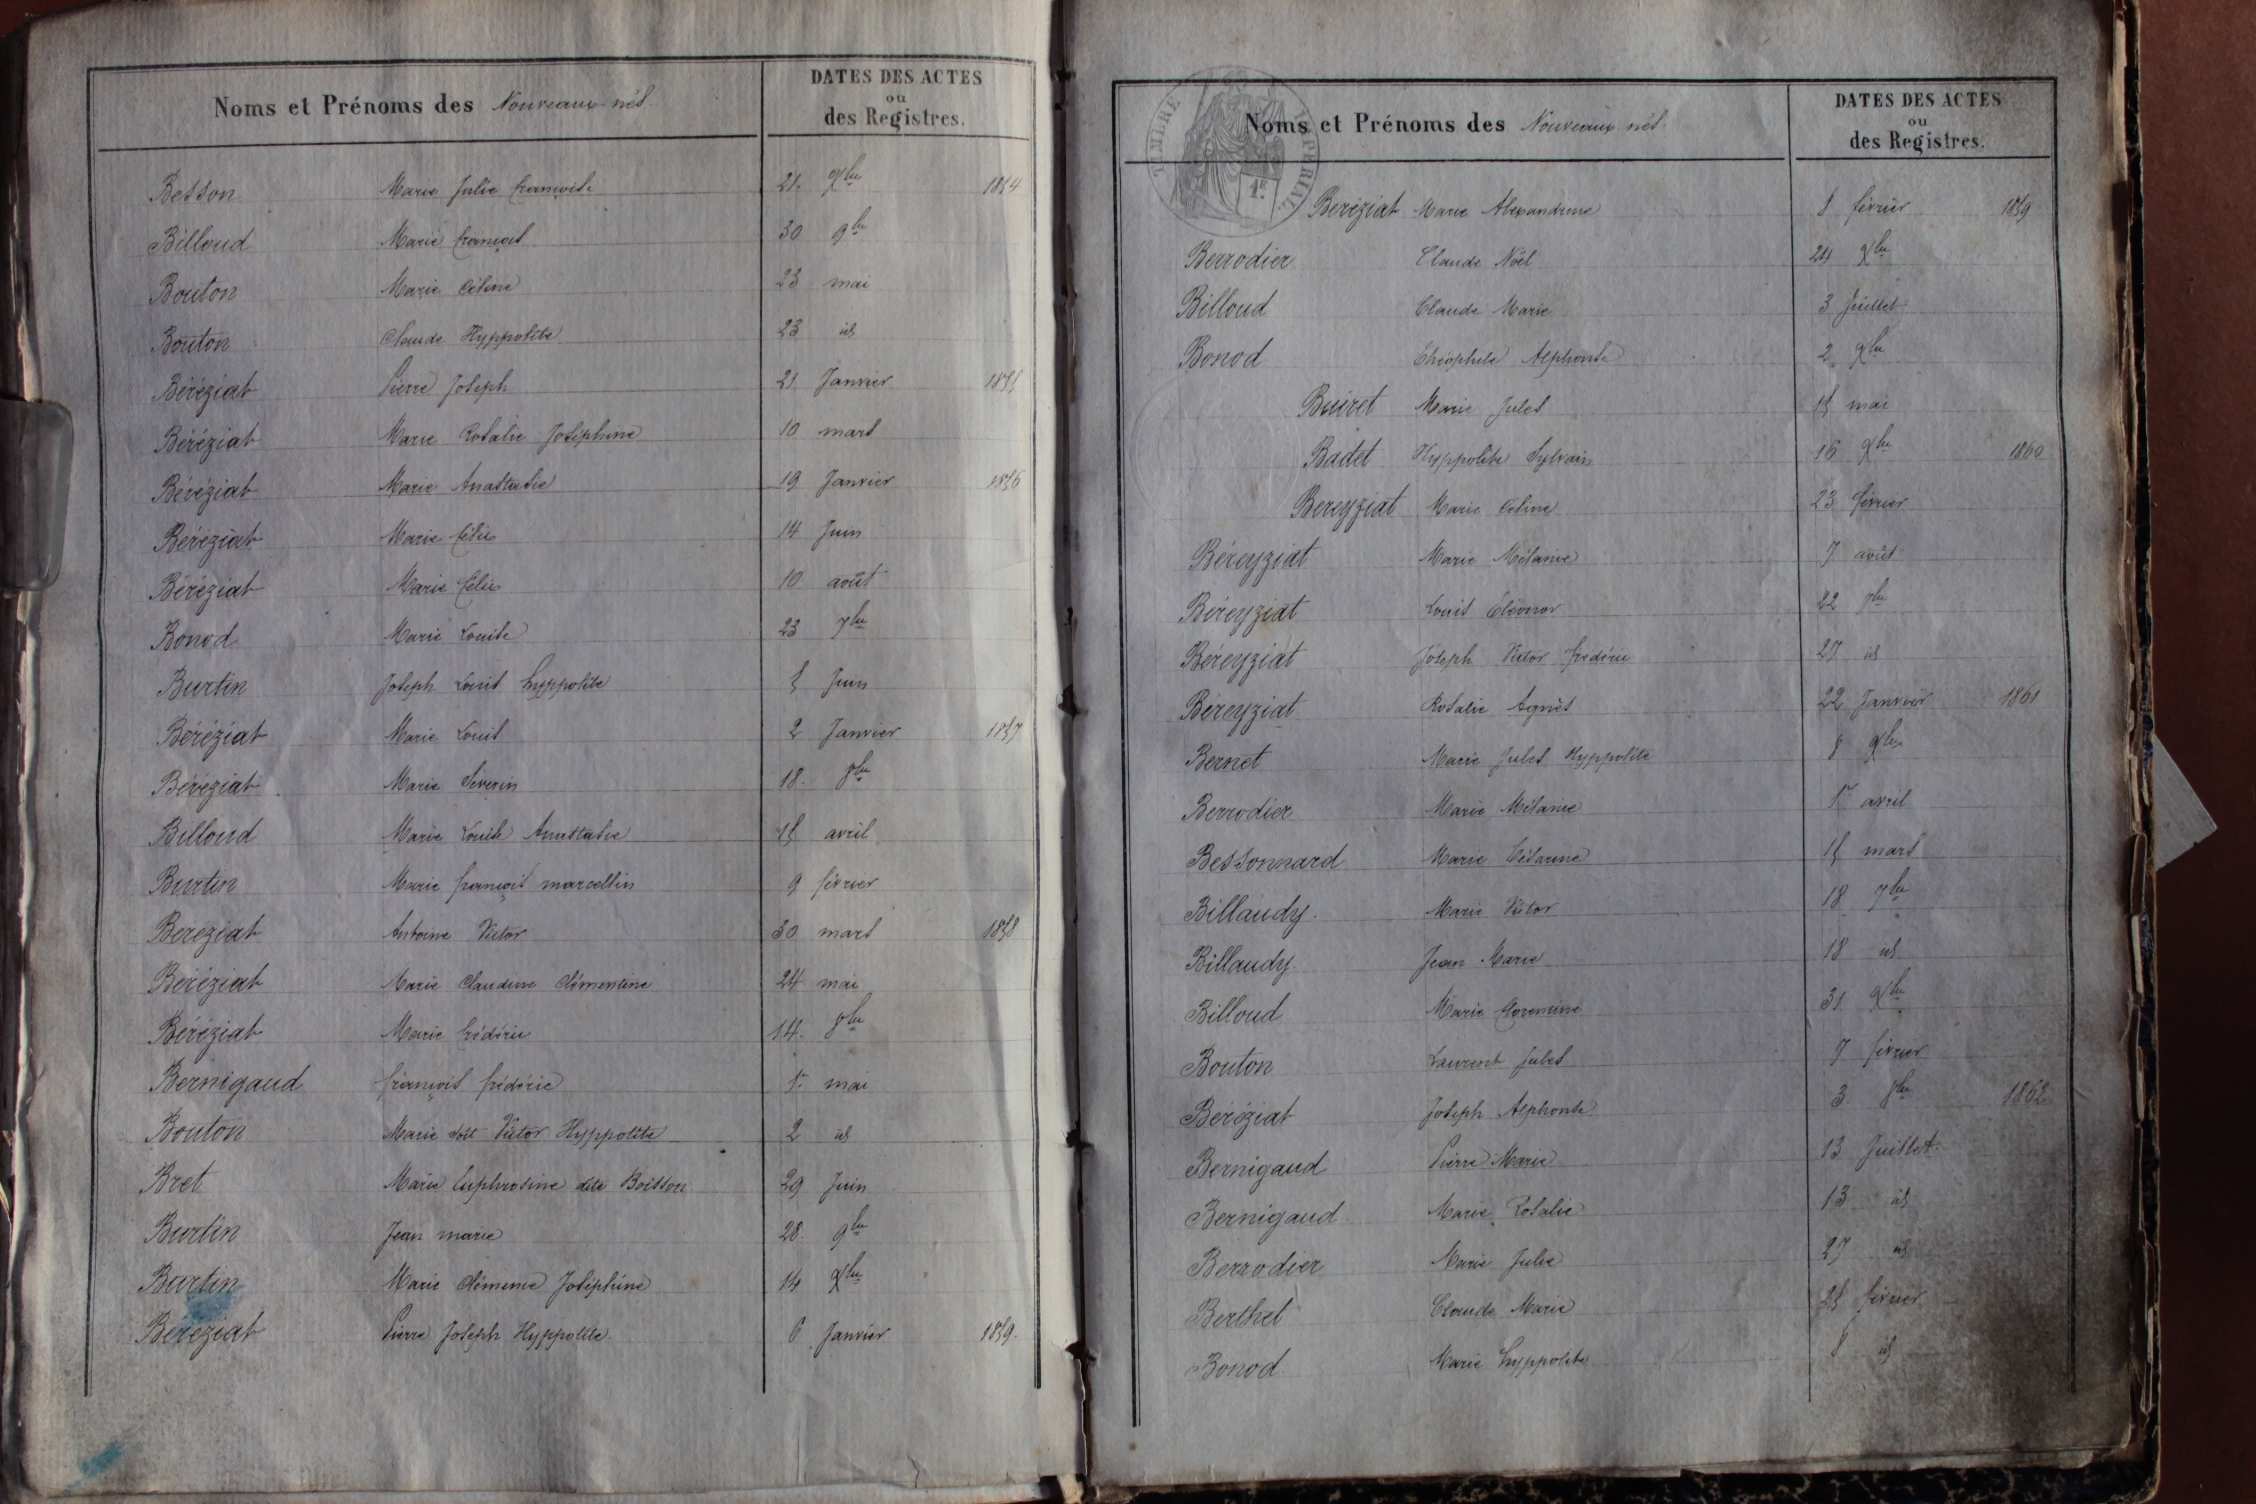 Noms et Prénoms des Nouveaux nés.
DATES DES ACTES
ou
des Registres.
Besson Marie Julie françoise 21. Xbre 1854
Billoud Marie françois 30 9bre
Bouton Marie Céline 23 mai
Bouton Claude Hyppolite 23 id
Béréziat Pierre Joseph 21 Janvier 1855
Béréziat Marie Rosalie Joséphine 10 mars
Béréziat Marie Anastasie 19 Janvier 1856
Béréziat Marie Célie 14 Juin
Béréziat Marie Célie 10 août
Bonod Marie Louise 23 7bre
Burtin Joseph Louis hyppolite 5 Juin
Béréziat Marie Louis 2 Janvier 1857
Béréziat Marie Séverin 18. 8bre
Billoud Marie Louise Anastasie 15 avril
Burtin Marie françois marcellin 9 février
Béréziat Antoine Victor 30 mars 1858
Béréziat Marie Claudine Clémentine 24 mai
Béréziat Marie frédéric 14. 8bre
Bernigaud françois frédéric 1er mai
Bouton Marie dit Victor Hyppolite 2 id
Bret Marie Euphrosine dite Boisson 29 Juin
Burtin Jean marie 28. 9bre
Burtin Marie Joséphine 14 Xbre
Béréziat Pierre Joseph Hyppolite 6 Janvier 1859.
TIMBRE IMPÉRIAL
1F.
Noms et Prénoms des Nouveaux nés.
DATES DES ACTES
ou
des Registres.
Béréziat Marie Alexandrine 8 février 1859
Berrodier Claude Noël 24 Xbre
Billoud Claude Marie 3 Juillet
Bonod Théophile Alphonse 2 Xbre
Buiret Marie Jules 15 mai
Badet Hyppolite Sylvain 16 Xbre 1860
Bereyziat Marie Céline 23 février
Béreyziat Marie Mélanie 7 août
Béreyziat Louis Eléonor 22 8bre
Béreyziat Joseph Victor frédéric 27 id
Béreyziat Rosalie Agnès 22 Janvier 1861
Bernet Marie Jules Hyppolite 8 Xbre
Berrodier Marie Mélanie 1er avril
Bessonnard Marie Césarine 15 mars
Billaudy. Marie Victor 18 7bre
Billaudy. Jean Marie 18 id
Billoud Marie florentine 31 Xbre
Bouton Laurent Jules 7 février
Béréziat Joseph Alphonse 3 8bre 1862
Bernigaud Pierre Marie 13 Juillet.
Bernigaud Marie Rosalie 13 id
Berrodier Marie Julie 27 id
Berthet Claude Marie 25 février
Bonod Marie hyppolite 8 id